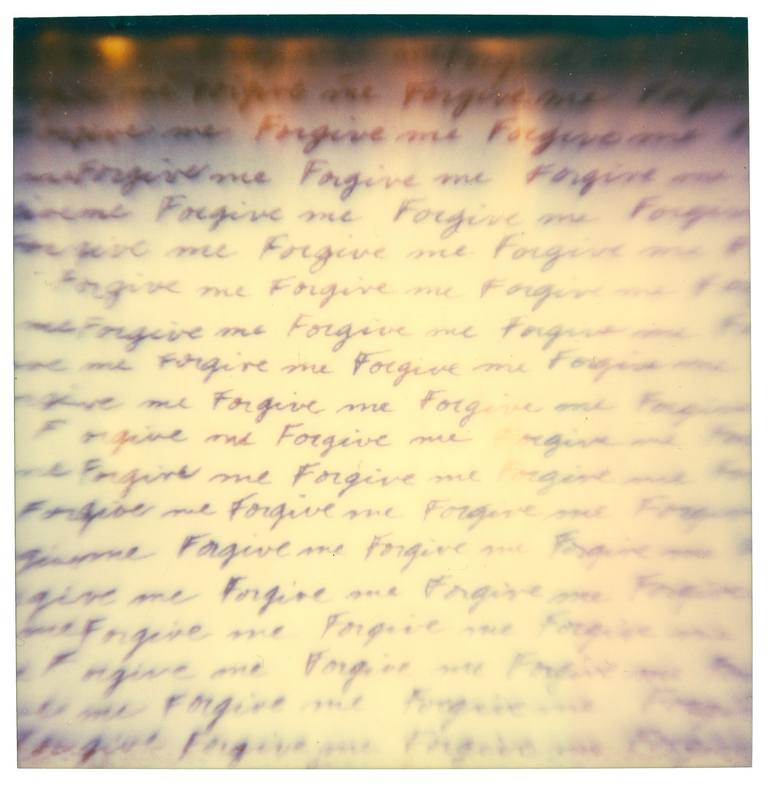 Forgive
me Forgive me Forgive me
me Forgive me Forgive me
Forgive me Forgive me Forgive me
me Forgive me Forgive me Forgive
me Forgive me Forgive me
Forgive me Forgive me Forgive me
me Forgive me Forgive me Forgive me
me Forgive me Forgive me Forgive me
me Forgive me Forgive me Forgive
Forgive me Forgive me Forgive me
me Forgive me Forgive me Forgive me
Forgive me Forgive me Forgive me Forgive
give me Forgive me Forgive me Forgive me
give me Forgive me Forgive me Forgive
me Forgive me Forgive me Forgive me
Forgive me Forgive me Forgive me
me Forgive me Forgive me
Forgive Forgive me Forgive me